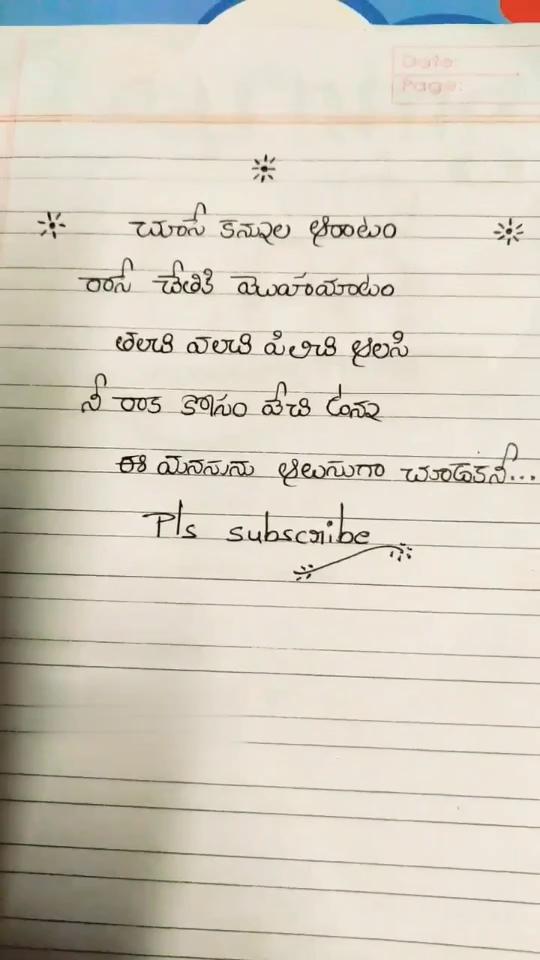 Date:
Page:
చూసే కన్నుల ఆరాటం
రాసే చేతికి మొహమాటం
తలచి వలచి పిలిచి అలసి
నీ రాక కోసం వేచి ఉన్న
ఈ మనసును అలుసుగా చూడకనే...
Pls subscribe